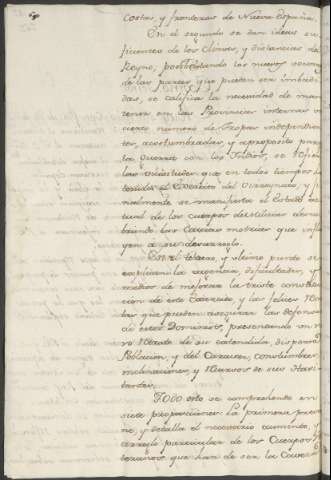 Costas, y fronteras de Nueva España.
En el segundo se dan ideas su-
ficientes de los climas, y distancias del
Reyno,
de las partes que pueden ser imbadi-
das, se califica la necesidad de man-
tener en las Provincias internas un
cierto numero de Tropas independien-
tes, acostumbradas, y aproposito para
la Guerra con los Indios, se
las que en todos tiempos ha
tenido el Exercito del Virreynato, y fi-
nalmente se manifiesta el estado ac-
tual de los cuerpos
las Causas motrices que influ-
yen a su desarreglo.
En el tercero, y ultimo punto se
explican la urgencia, dificultades, y
medios de mejorar la triste constitu-
cion de este Exercito, y las
que pueden asegurar las defensas
de estos Dominios, presentando un
de su extendida, dispersa
Poblacion, y del Caracter, costumbres,
inclinaciones, y de sus Havi-
tantes.
Todo esto se comprehende en
siete proposiciones: La primera previe-
ne, y detalla el necesario aumento, y
arreglo particular de los Cuerpos Ve-
teranos que han de ser la